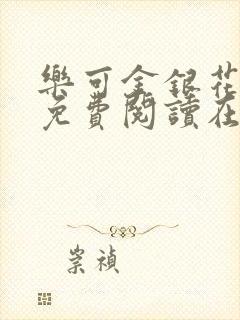 樂可金銀花
免費閱讀在
崇禎